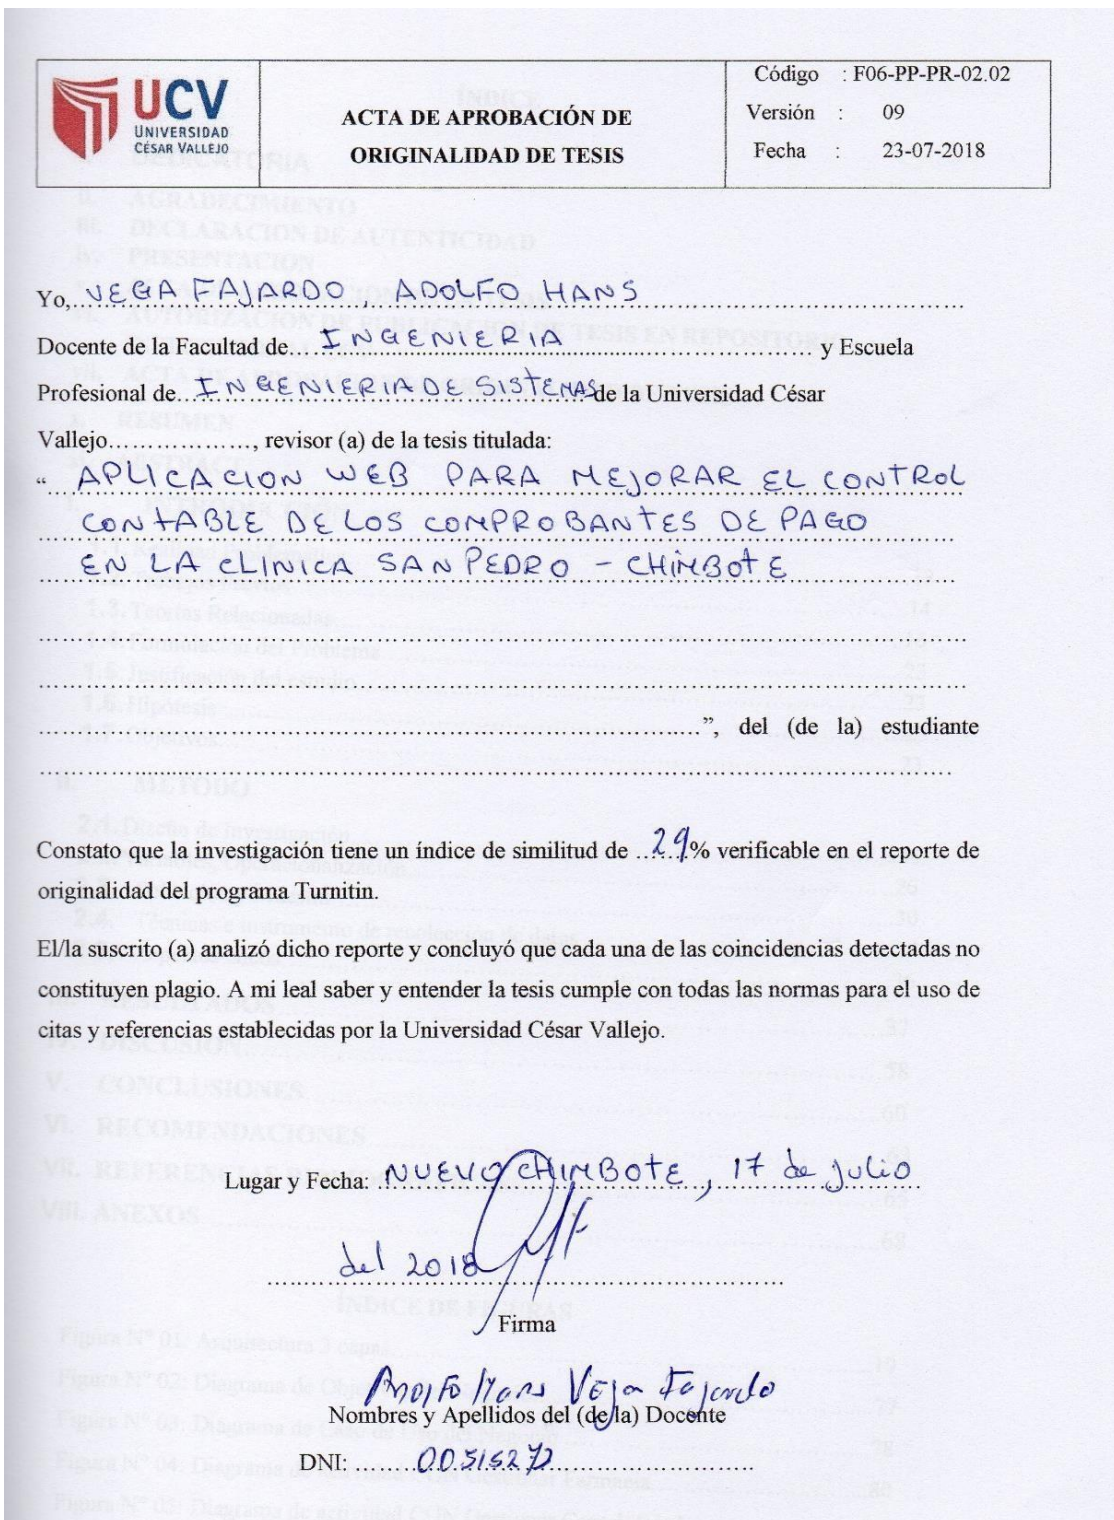 UCV
UNIVERSIDAD
CÉSAR VALLEJO
ACTA DE APROBACIÓN DE
ORIGINALIDAD DE TESIS
Código : F06-PP-PR-02.02
Versión : 09
Fecha : 23-07-2018
Yo, VEGA FAJARDO ADOLFO HANS
Docente de la Facultad de INGENIERIA y Escuela
Profesional de INGENIERIA DE SISTEMAS de la Universidad César
Vallejo..................., revisor (a) de la tesis titulada:
“ APLICACION WEB PARA MEJORAR EL CONTROL
CONTABLE DE LOS COMPROBANTES DE PAGO
EN LA CLINICA SAN PEDRO - CHIMBOTE
”, del (de la) estudiante
Constato que la investigación tiene un índice de similitud de 29% verificable en el reporte de
originalidad del programa Turnitin.
El/la suscrito (a) analizó dicho reporte y concluyó que cada una de las coincidencias detectadas no
constituyen plagio. A mi leal saber y entender la tesis cumple con todas las normas para el uso de
citas y referencias establecidas por la Universidad César Vallejo.
Lugar y Fecha: NUEVO CHIMBOTE, 17 de julio
del 2018
Firma
Adolfo Hans Vega Fajardo
Nombres y Apellidos del (de la) Docente
DNI: